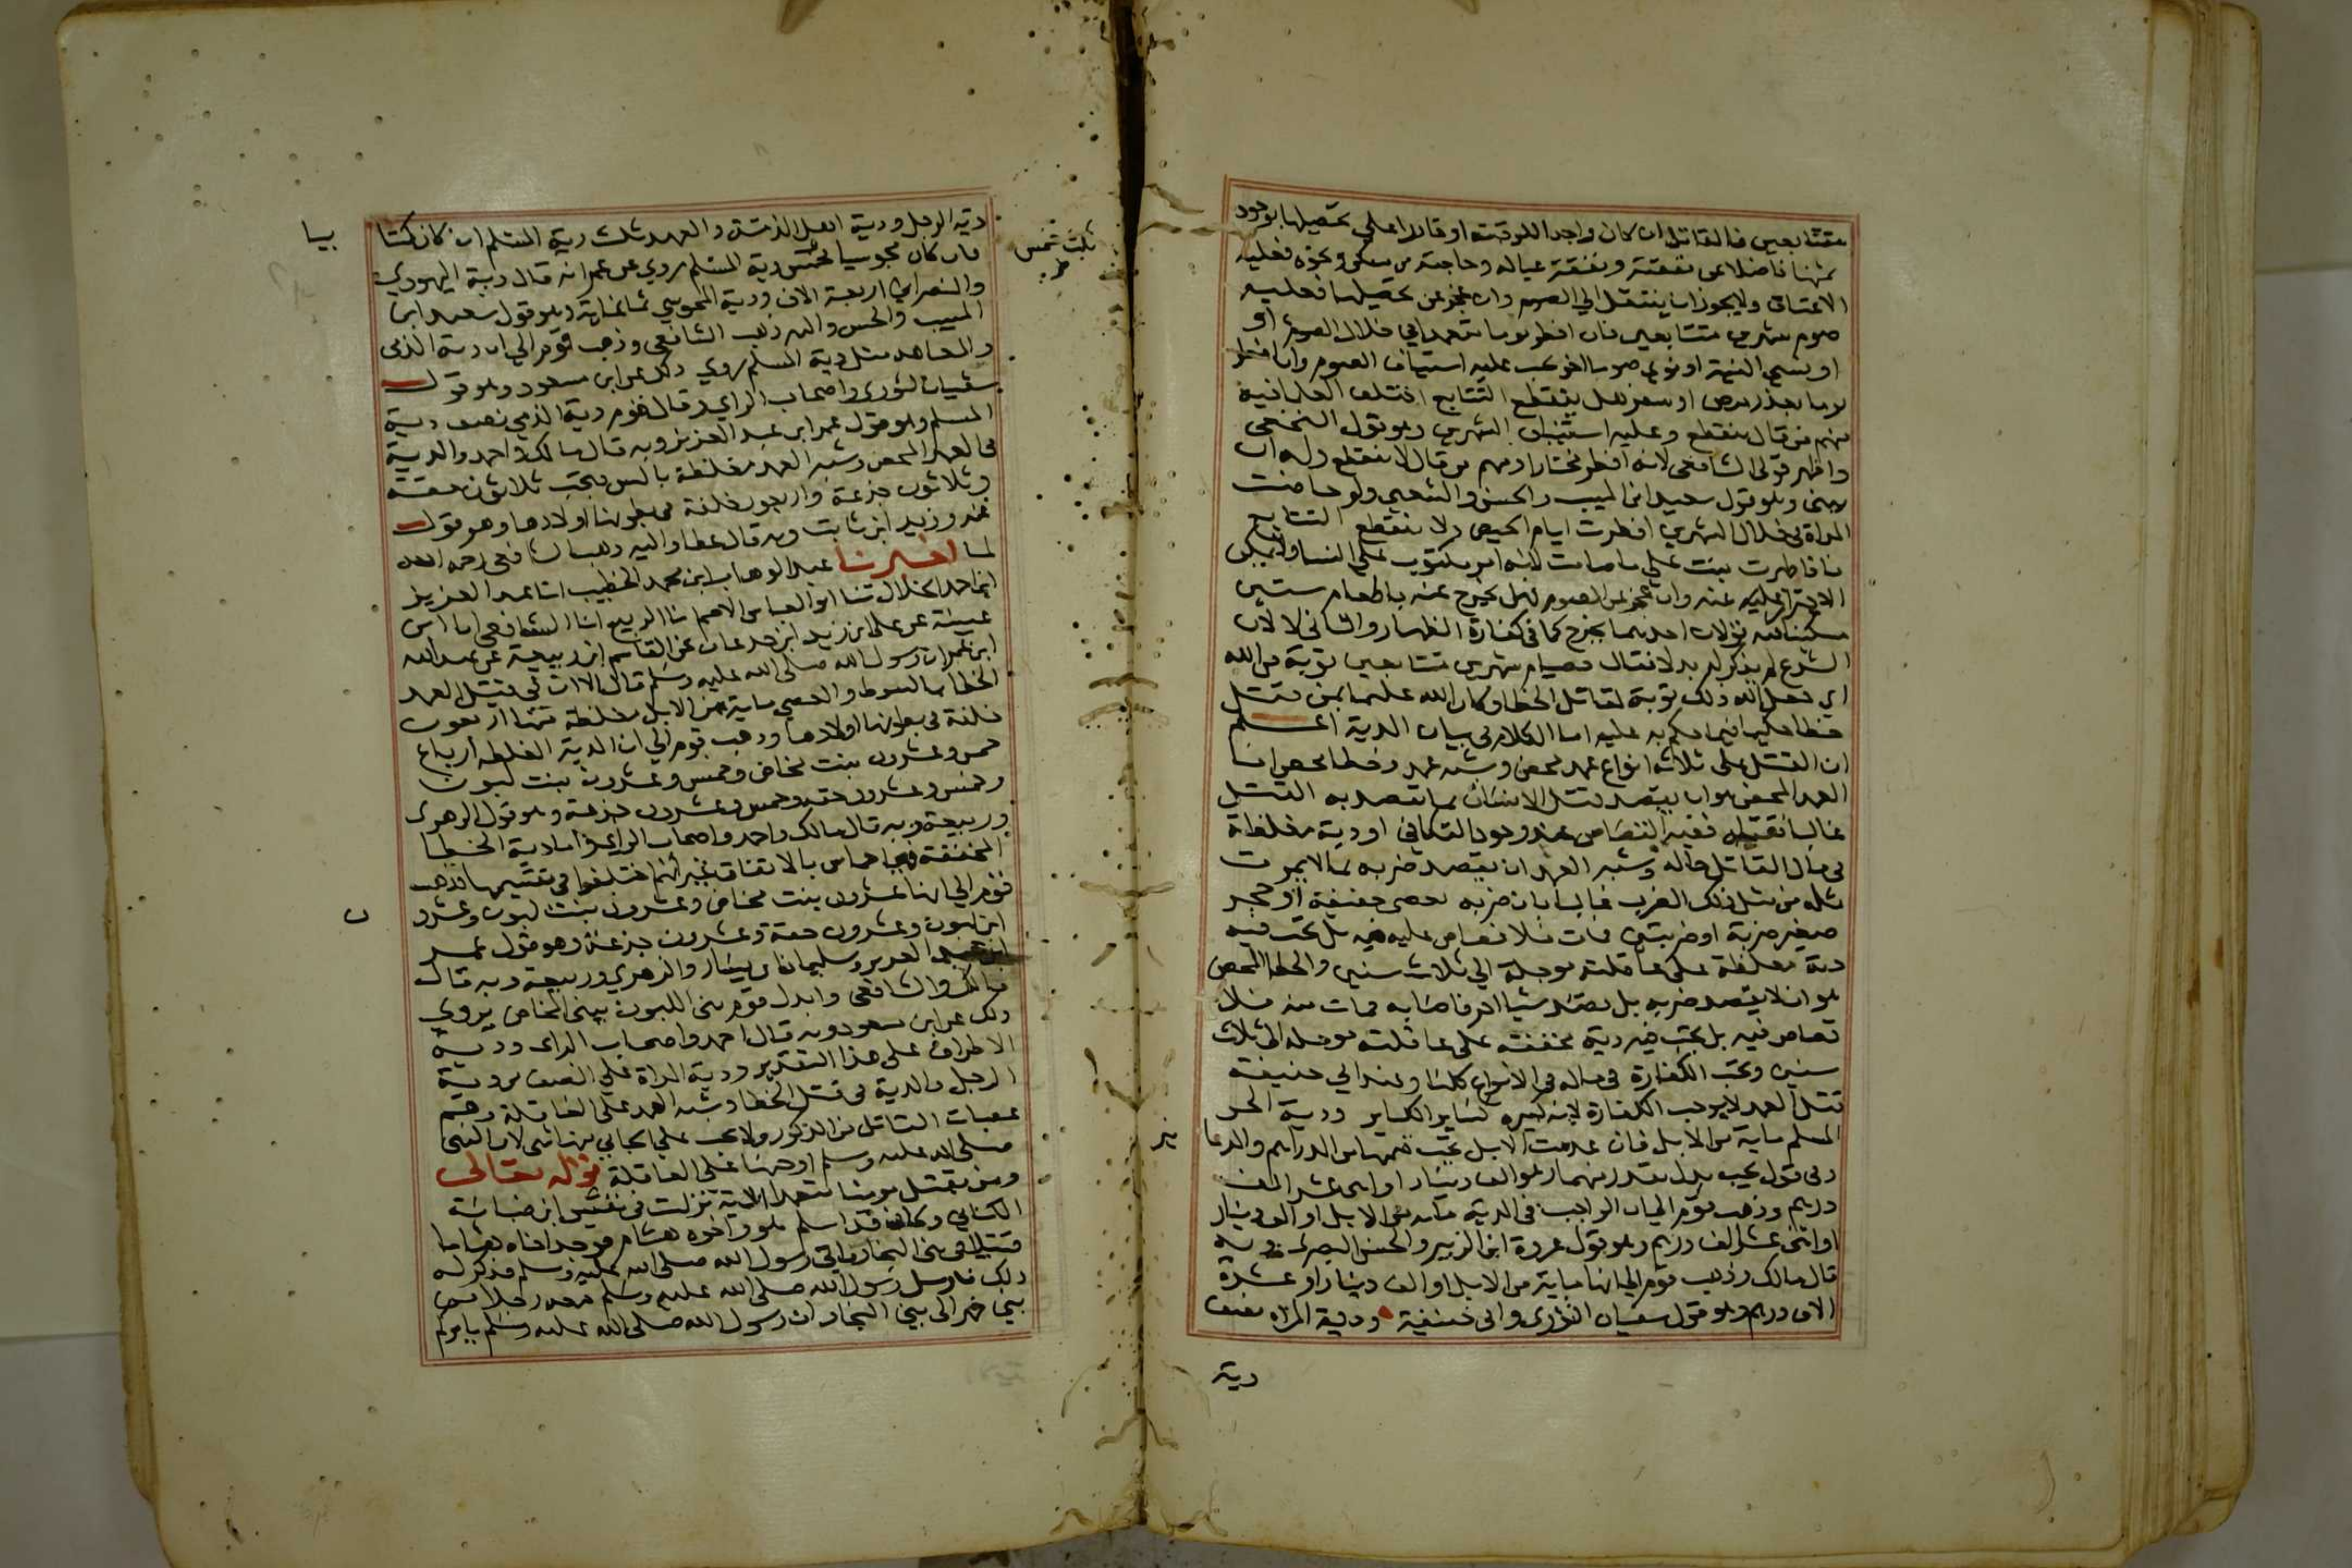 متتابعين فالقاتل ان كان واجدا للرقبة او قادرا على تحصيلها بوجود
ثمنها فاضلا عن نفقته ونفقة عياله وحاجته من مسكن ونحوه فعليه
الاعتاق ولا يجوز ان ينتقل الى الصوم وان عجز عن تحصيلها فعليه
صوم شهرين متتابعين فان افطر يوما متعمدا في خلال الصوم او
او نسي النية او نوى صوما اخر يجب عليه استيناف الصوم وان افطر
يوما بعذر مرض او سفر هل ينقطع التتابع اختلف العلما فيه
منهم من قال ينقطع وعليه استيناف الشهرين وهو قول النخعي
واظهر قولى الشافعى لانه افطر مختارا ومنهم من قال لا ينقطع وله ان
يبنى وهو قول سعيد ابن المسيب والحسن والشعبي ولو حاضت
المراة في خلال الشهرين افطرت ايام الحيض ولا ينقطع التتابع
فاذا طهرت بنت على ما صامت لانه امر مكتوب على النسا ولا يمكن
الاحتراز عنه وان عجز عن الصوم فهل يخرج عنه باطعام ستين
مسكينا فيه قولان احدهما يخرج كما في كفارة الظهار والثانى لا لان
الشرع لم يذكر له بدلا فقال فصيام شهرين متتابعين توبة من الله
اي جعل الله ذلك توبة لقاتل الخطا وكان الله عليما بمن قتل
خطا حكيما فيما حكم به عليه اما الكلام في بيان الدية اعلم
ان القتل على ثلاثة انواع عمد محض وشبه عمد وخطا محض اما
العمد المحض هو ان يقصد قتل الانسان بما يقصد به القتل
غالبا فقتله ففيه القصاص عند وجود التكافي او دية مغلظة
في مال القاتل حالة وشبه العمد ان يقصد ضربه بما لا يموت
مثله من مثل ذلك الضرب غالبا بان ضربه بعصى خفيفة او حجر
صغير ضربة او ضربتين فمات فلا قصاص عليه فيه بل تجب فيه
دية مغلظة على عاقلته موجلة الى ثلاث سنين والخطا المحض
هو ان لا يقصد ضربه بل يقصد شيا اخر فاصابه فمات منه فلا
قصاص فيه بل تجب فيه دية مخففة على عاقلته موجلة الى ثلاث
سنين وتجب الكفارة في ماله في الانواع كلها وعند ابي حنيفة
قتل العمد لا يوجب الكفارة لانه كبيرة كساير الكباير ودية الحر
المسلم ماية من الابل فان عدمت الابل تجب قيمتها من الدراهم والدنا
نير
وفي قول يجب بدل مقدر منهما وهو الف دينار او اثنى عشر الف
درهم وذهب قوم الى ان الواجب في الدية ماية من الابل او الف دينار
او اثنى عشر الف درهم وهو قول عروة ابن الزبير والحسن البصري وبه
قال مالك وذهب قوم الى انها ماية من الابل او الف دينار او عشرة
الاف درهم وهو قول سفيان الثوري وابى حنيفة ودية المراة نصف
دية
دية الرجل ودية اهل الذمة والعهد ثلث دية المسلم ان كان كتابيا
وان كان مجوسيا فخمس دية المسلم روي عن عمر انه قال دية اليهودي
ثلث خمس
والنصراني اربعة الاف ودية المجوسي ثمانماية وهو قول سعيد ابن
المسيب والحسن واليه ذهب الشافعى وذهب قوم الى ان دية الذمى
والمعاهد مثل دية المسلم روي ذلك عن ابن مسعود وهو قول
سفيان الثوري واصحاب الراي وقال قوم دية الذمي نصف دية
المسلم وهو قول عمر ابن عبد العزيز وبه قال مالك واحمد والدية
في العمد المحض وشبه العمد مغلظة بالسن فيجب ثلاثون حقة
وثلاثون جذعة واربعون خلفة في بطونها اولادها وهو قول
عمر وزيد ابن ثابت وبه قال عطا واليه ذهب الشافعى رحمه الله
لما اخبرنا عبد الوهاب ابن محمد الخطيب انا عبد العزيز
ابن احمد الخلال ثنا ابو العباس الاصم انا الربيع انا الشافعى انا ابن
عيينة عن على ابن زيد ابن جدعان عن القاسم ابن ربيعة عن عبد الله
ابن عمر ان رسول الله صلى الله عليه وسلم قال الا ان في قتيل العمد
الخطا بالسوط والعصى ماية من الابل مغلظة منها اربعون
خلفة في بطونها اولادها وذهب قوم الى ان الدية المغلظة ارباع
خمس وعشرون بنت مخاض وخمس وعشرون بنت لبون
وخمس وعشرون حقة وخمس وعشرون جذعة وهو قول الزهرى
وربيعة وبه قال مالك واحمد واصحاب الراي واما دية الخطا
المخففة فهي اخماس بالاتفاق غير انهم اختلفوا في تقسيمها فذهب
قوم الى انها عشرون بنت مخاض وعشرون بنت لبون وعشرون
ابن لبون وعشرون حقة وعشرون جذعة وهو قول عمر
ابن عبد العزيز وسليمان ابن يسار والزهري وربيعة وبه قال
مالك والشافعى وابدل قوم بنى اللبون ببنى المخاض يروي
ذلك عن ابن مسعود وبه قال احمد واصحاب الراى ودية
الاطراف على هذا التقدير ودية المراة على النصف من دية
الرجل والدية في قتل الخطا وشبه العمد على العاقلة وهم
عصبات القاتل من الذكور ولا يجب على الجاني منها شى لان النبى
صلى الله عليه وسلم اوجبها على العاقلة قوله تعالى
ومن يقتل مومنا متعمدا الاية نزلت في مقيس ابن ضبابة
الكنانى وكان قد اسلم هو واخوه هشام فوجد اخاه هشاما
قتيلا في بنى النجار فاتى رسول الله صلى الله عليه وسلم فذكر له
ذلك فارسل رسول الله صلى الله عليه وسلم معه رجلا من
بني فهر الى بني النجار ان رسول الله صلى الله عليه وسلم يامركم